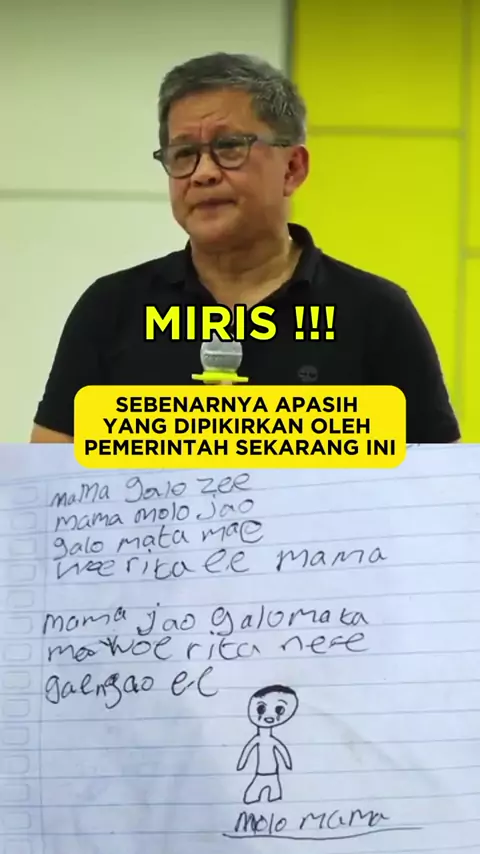 MIRIS !!!
SEBENARNYA APASIH
YANG DIPIKIRKAN OLEH
PEMERINTAH SEKARANG INI
mama galo zee
mama molo jao
galo mata mae
woe rita ee mama
mama jao galo mata
mae woe rita nee
gaengao ee
molo mama